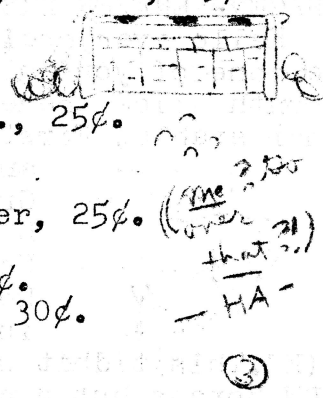 ., 25¢.
er, 25¢. (me ? go
over
that?!)
¢.
30¢.
— HA —
3